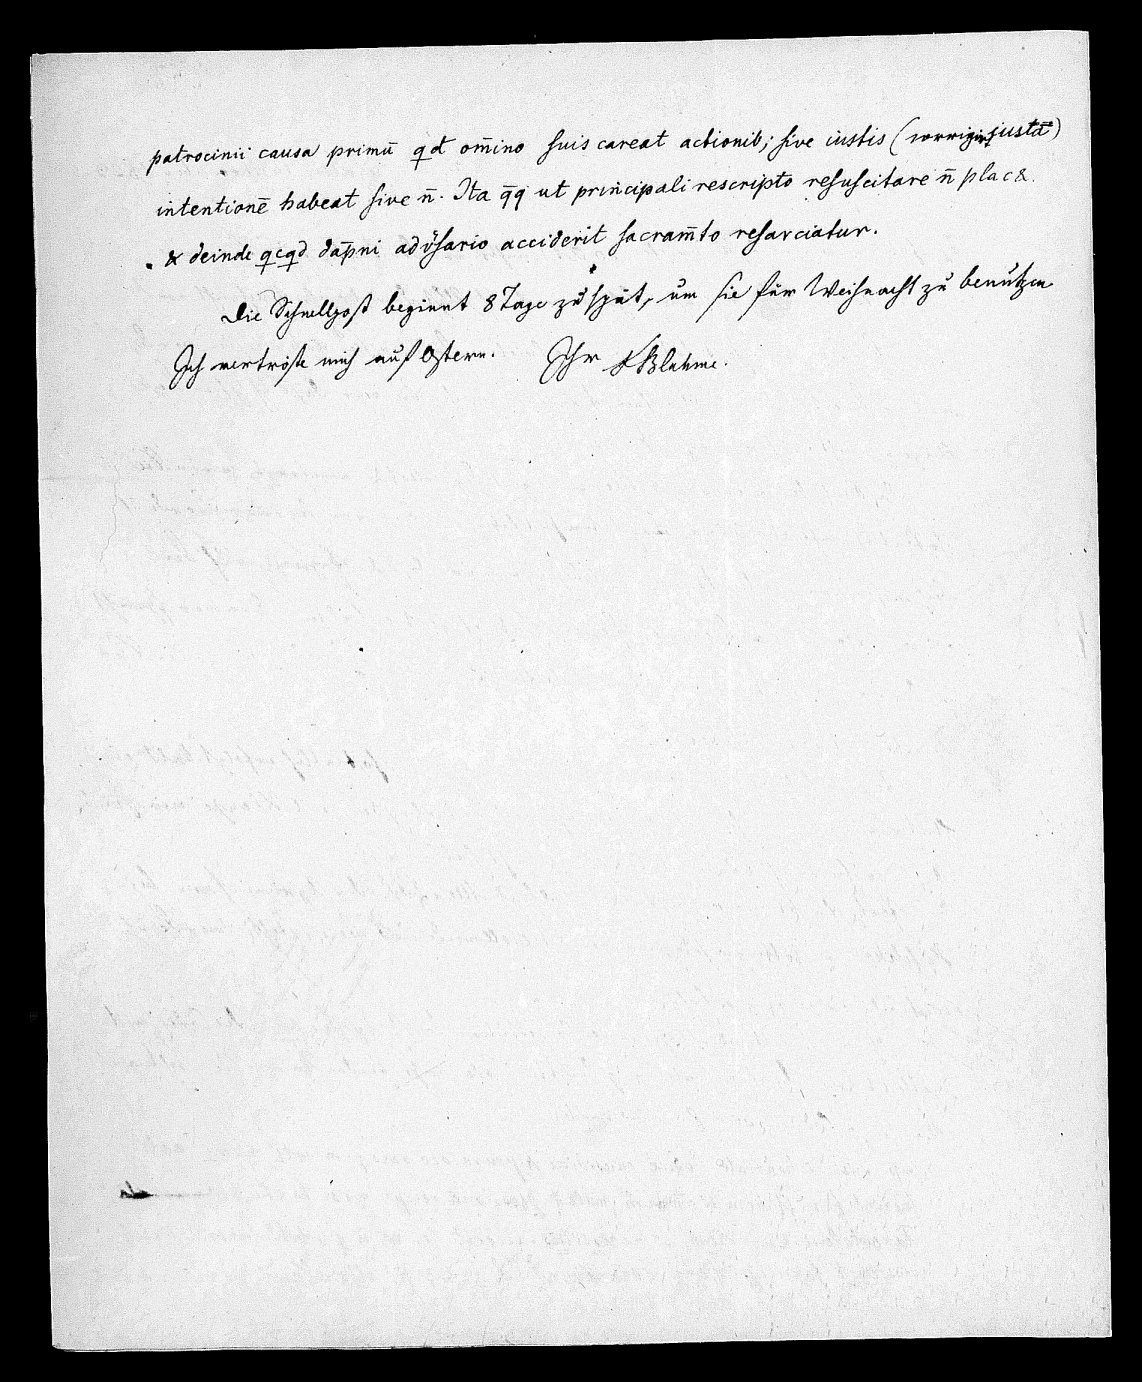 patrocinii causa primū qd om̄ino suis careat actionib; sive iustis (corrigirt justā)
intentionē habeat sive n̄. Ita q̄q ut principali rescripto resuscitare n̄ plac&.
& deinde qcqd dap̄ni adv̄sario acciderit sacram̄to resarciatur.
Die Schnellpost beginnt 8 Tage zu spät, um sie für Weihnacht zu benutzen
Ich vertröste mich auf Ostern. Ihr FBluhme.